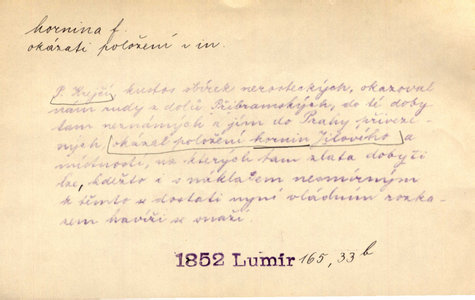 hornina f.
okazati položení v in.
P. Krejčí, kustos sbírek nerosteckých, okazoval
nám rudy z dolů Příbramských, do té doby
tam neznámých a jím do Prahy přivezl-
ných, okázal položení hornin Jílového a
místnosti, na kterých tam zlata dobyti
lze, kdežto i s nákladem nesmírným
k těmto se dostati nyní vládním rozka-
zem havíři se snaží.
1852 Lumír 165, 33 b